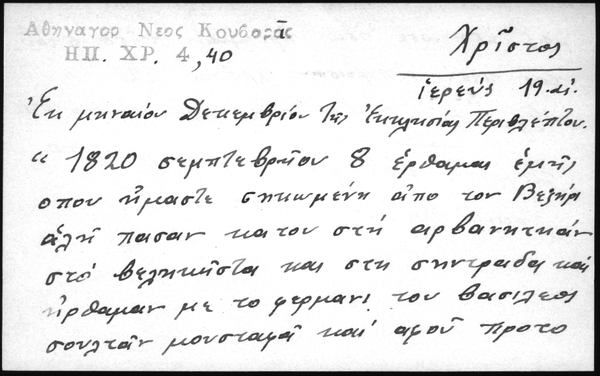 Αθηναγορ Νεος Κουβαρᾶς
ΗΠ. ΧΡ. 4,40
Χρῖστος
ἱερεύς 19. αἰ.
Ἐκ μηναίου Δεκεμβρίου τῆς Ἐκκλησίας Περιβλέπτου.
“ 1820 σεμπτεβρηου 8 ἐρθαμαι ἐμης
οπου ἤμαστε σηκωμένη ἀπο τον Βεζηρ
ἀλη πασαν κατου στη αρβανητκάν
στό βεληκηστα και στη σηντραδα καὶ
ἠρθαμαν με το φερμανι του βασιλεος
σουλτᾶν μουσταφᾶ καὶ αφοῦ προτο